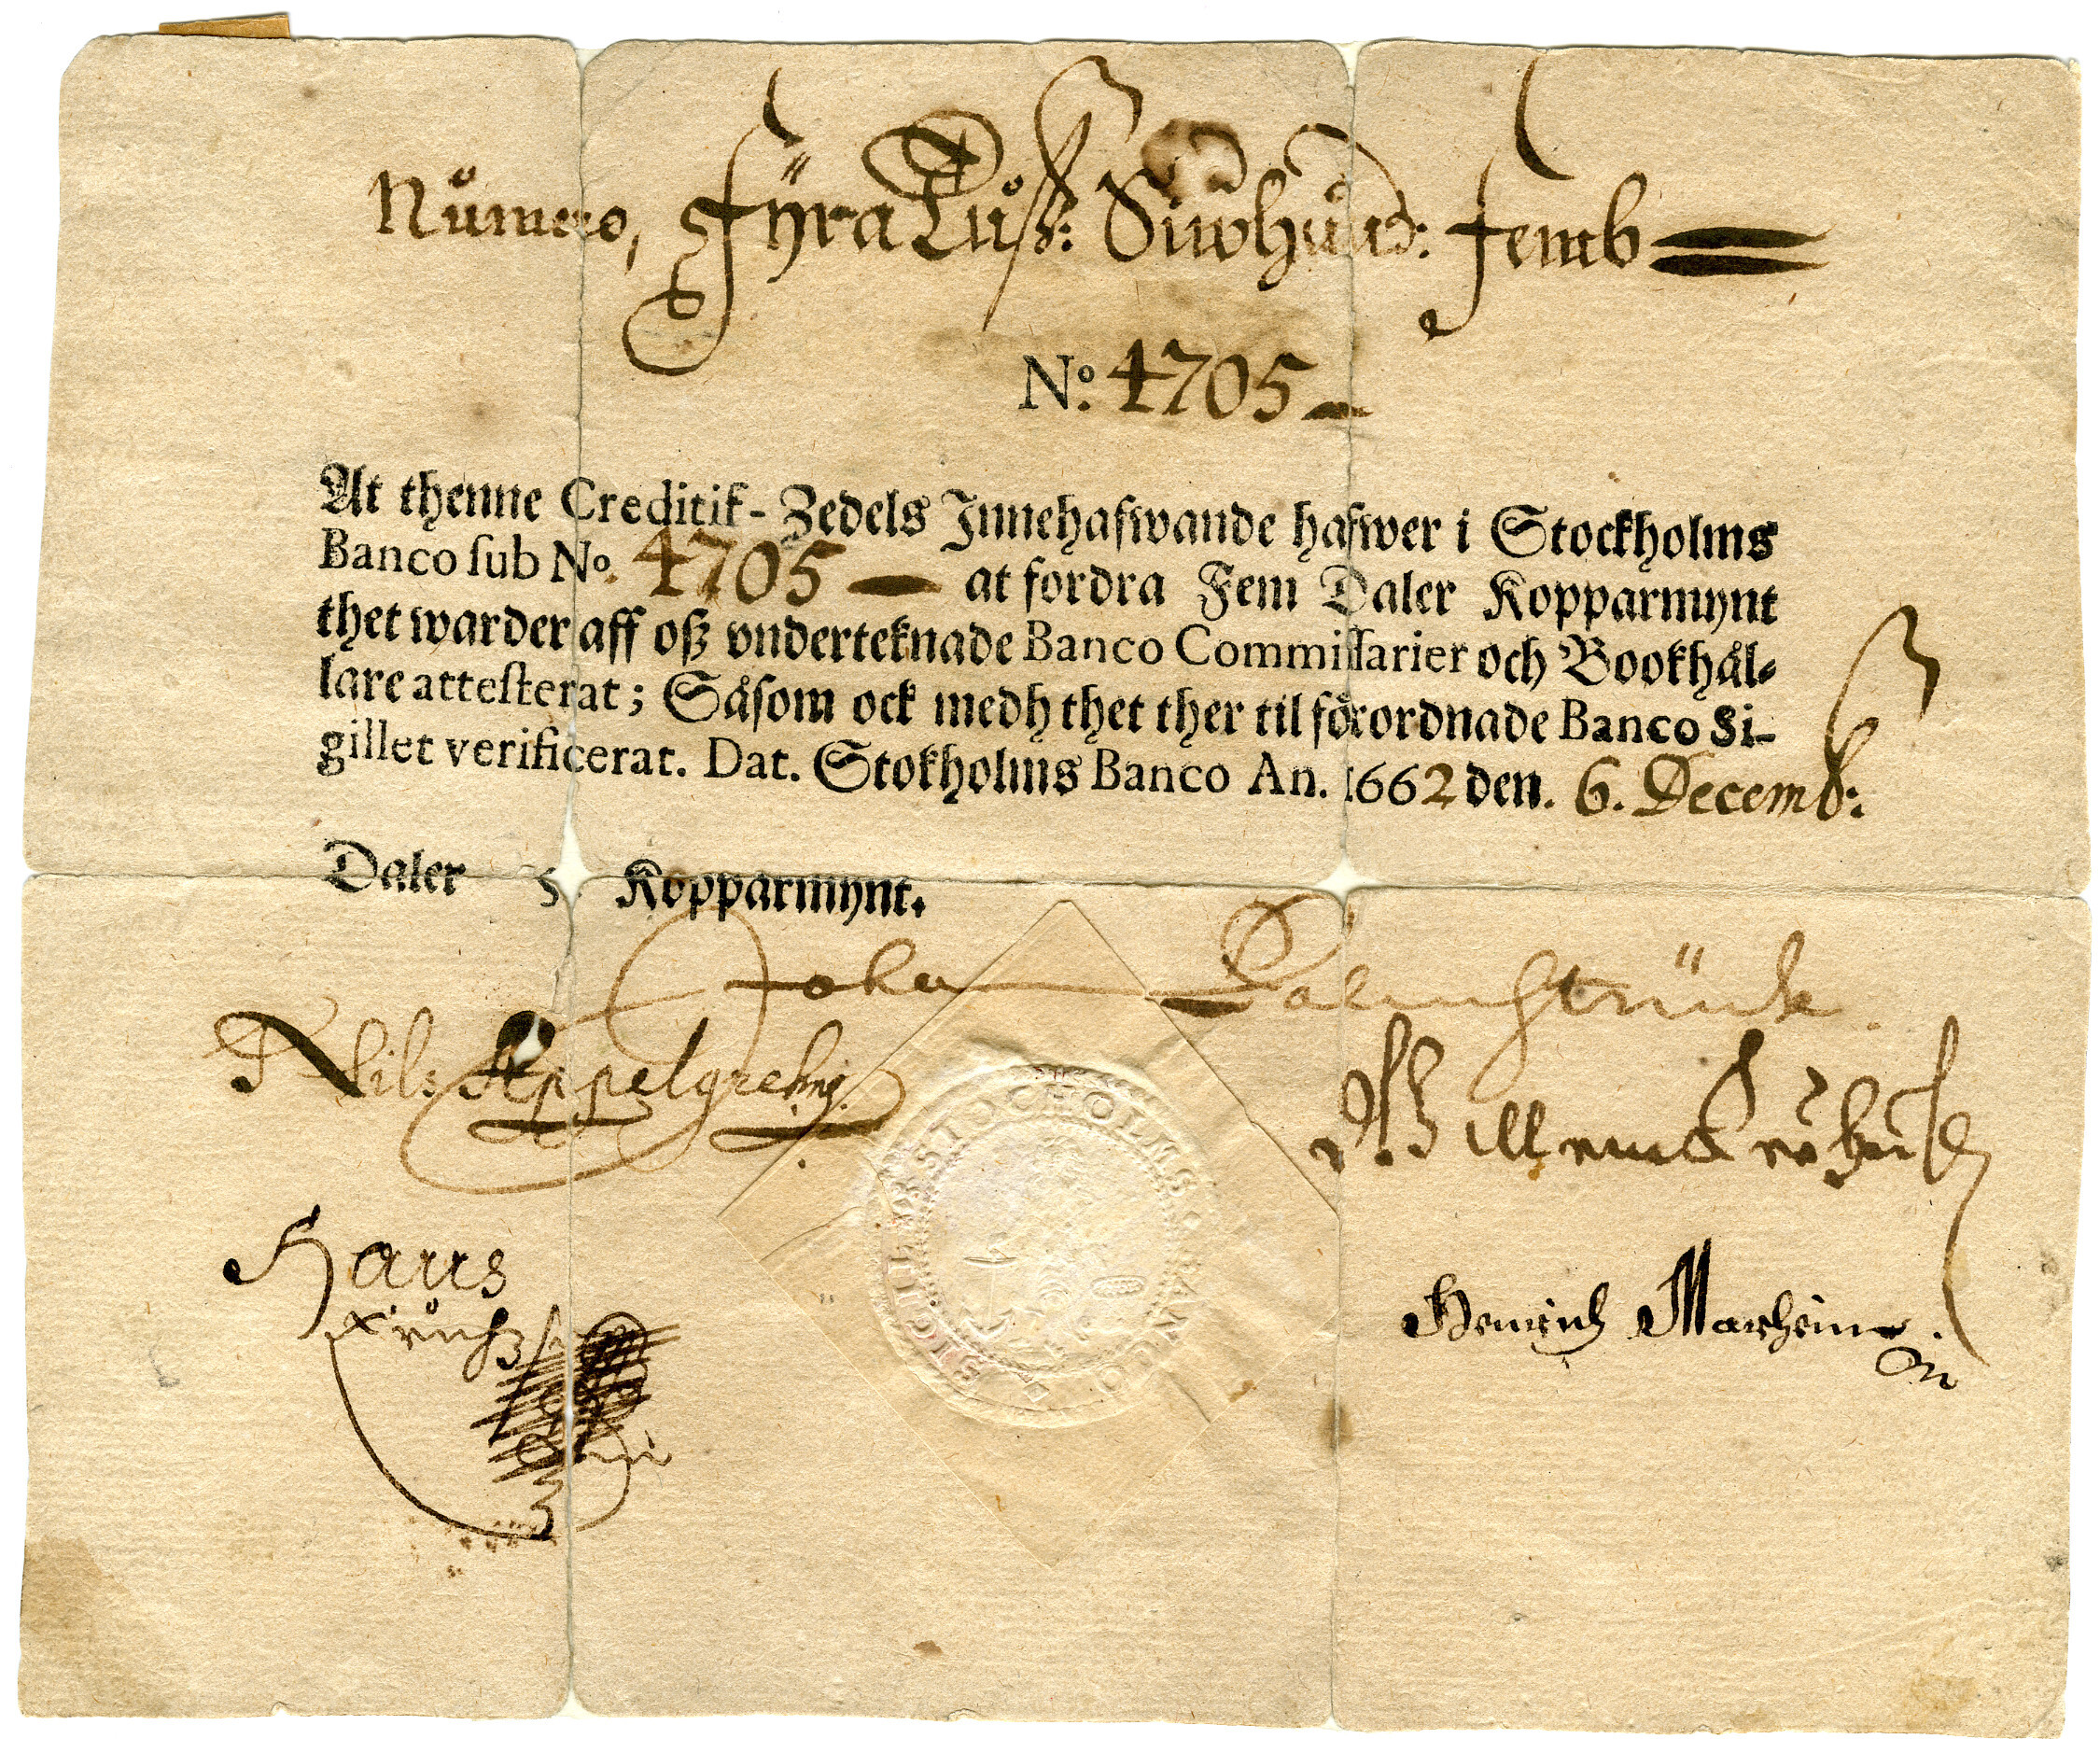 Nůmero, Fÿra Tůß: Siwhůnd: Femb
No. 4705
At thenne Creditif-Zedels Innehafwande hafwer i Stockholms
Banco ſub No. 4705 at fordra Fem Daler Kopparmynt
thet warder aff oß vnderteknade Banco Commiſſarier och Bookhål-
lare atteſterat; Såſom ock medh thet ther til förordnade Banco Si-
gillet verificerat. Dat. Stokholms Banco An. 1662 den. 6. Decemb:
Daler 5. Kopparmynt.
Johan Palmstrück
Nils Appelgrehn
Hans
Henrich Marhein
STOCHOLMS BANCO SIGILL